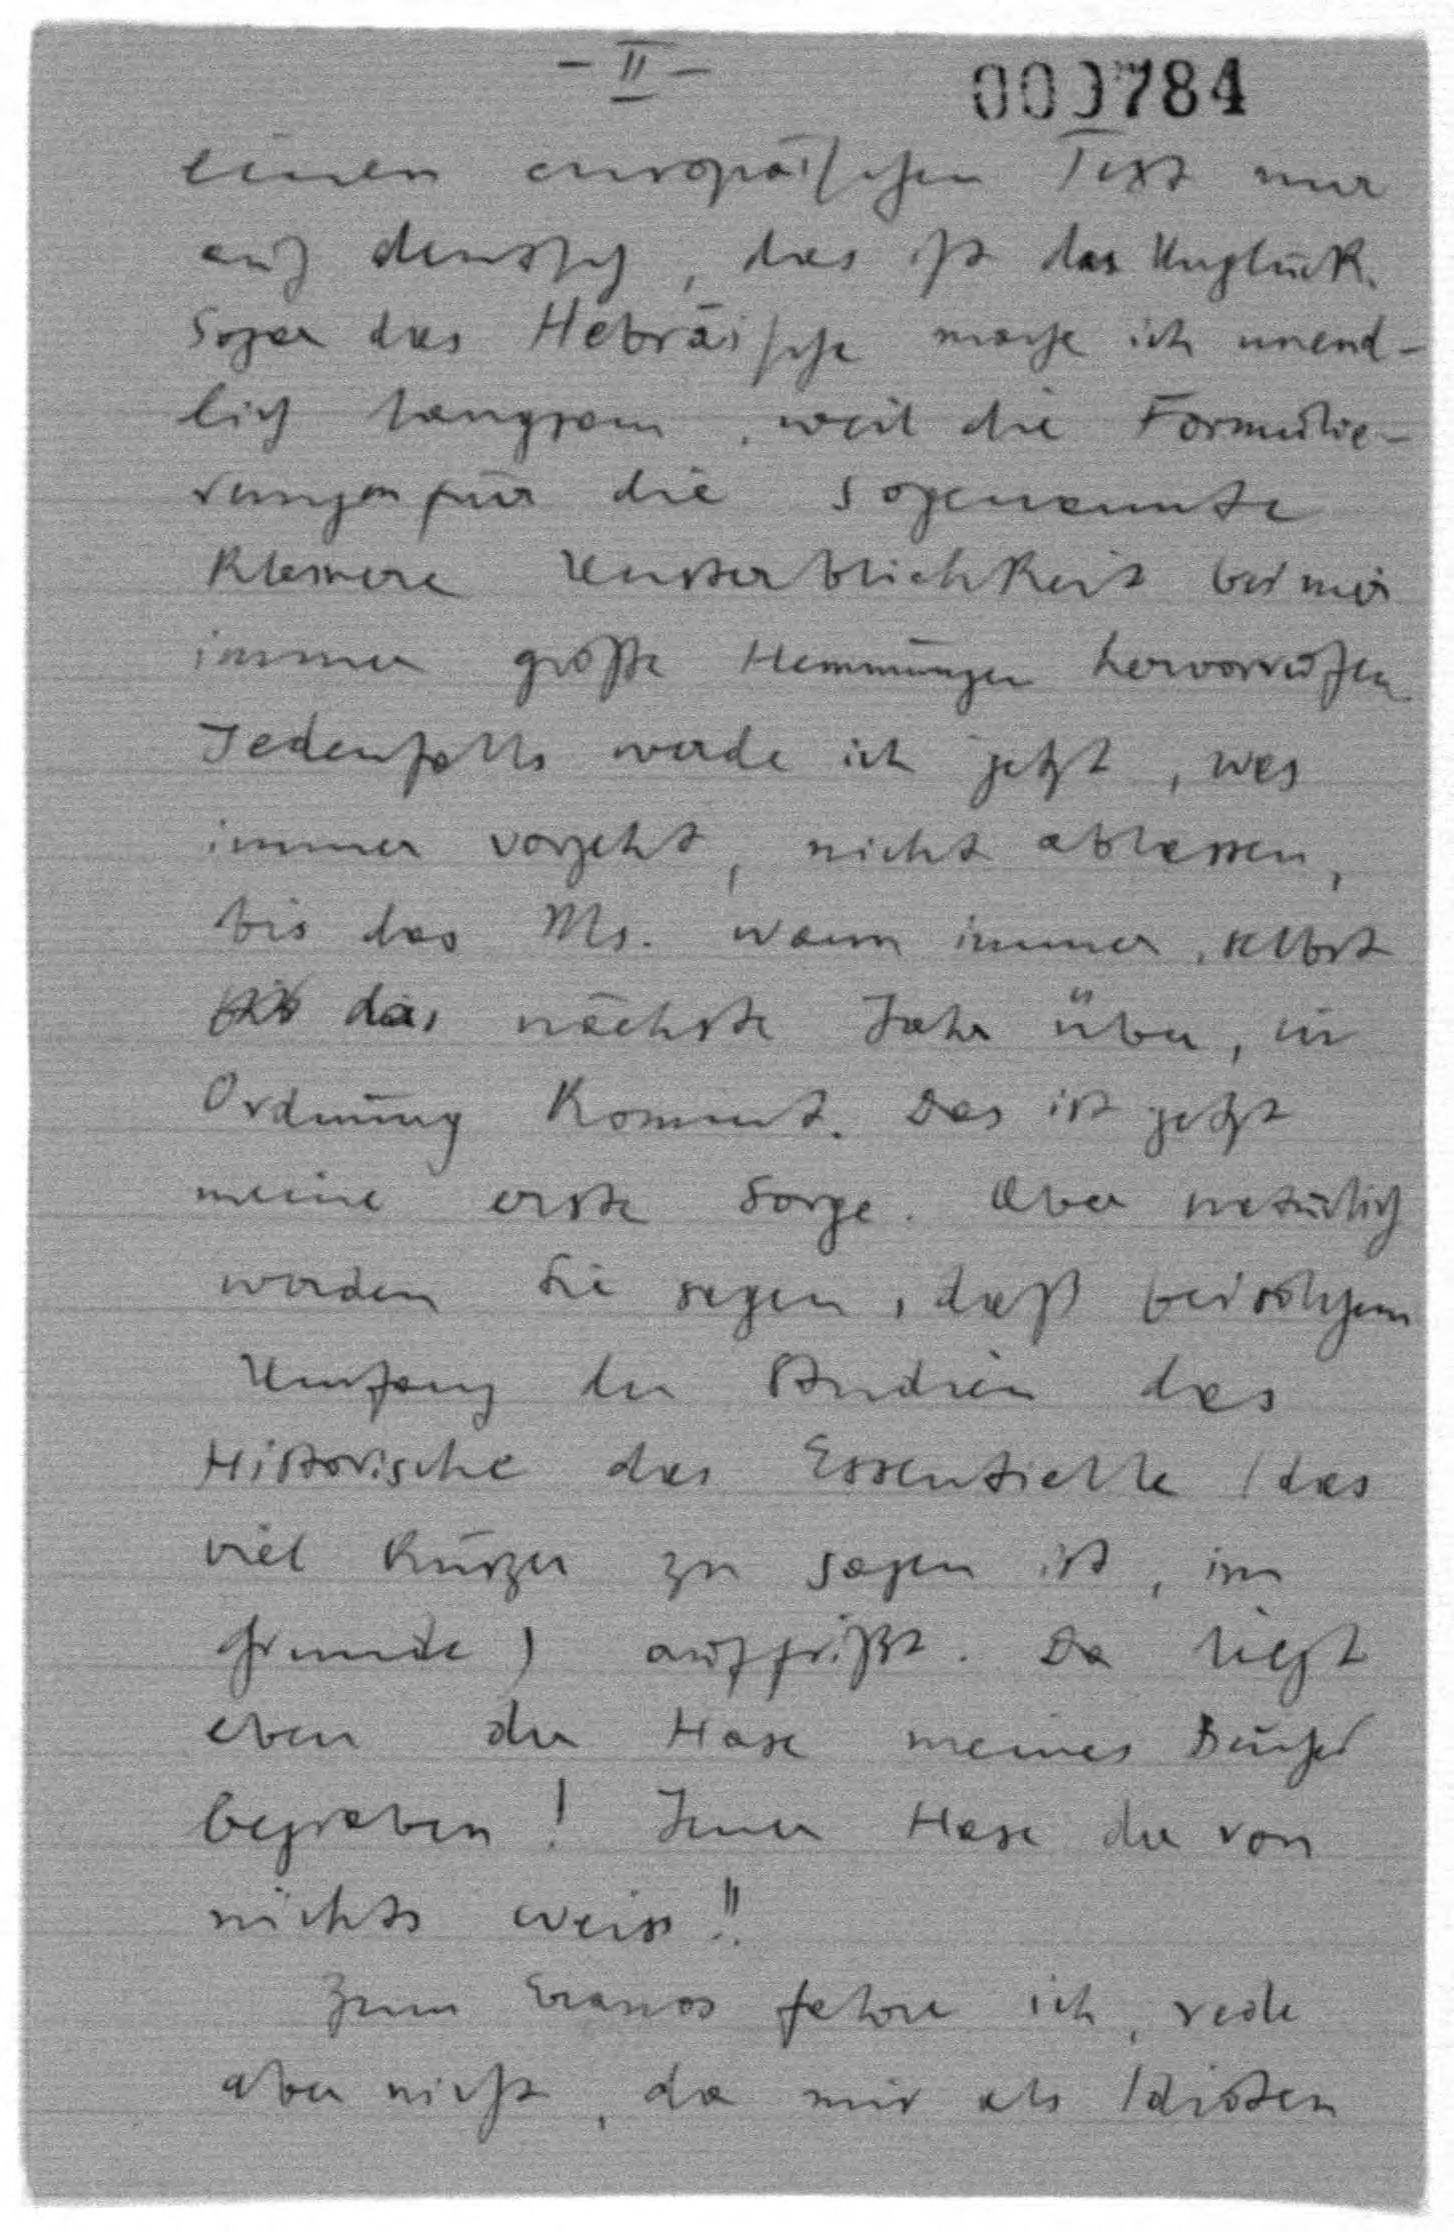 – II –
000784
einen europäischen Text nur
auf deutsch, das ist das Unglück.
Sogar das Hebräische mache ich unend-
lich langsam, weil die Formulie-
rungen für die sogenannte
kleinere Unsterblichkeit bei mir
immer große Hemmungen hervorrufen
Jedenfalls werde ich jetzt, was
immer vorgeht, nicht ablassen,
bis das Ms. wann immer, selbst
das nächste Jahr über, in
Ordnung kommt. Das ist jetzt
meine erste Sorge. Aber natürlich
werden Sie sagen, daß bei solchem
Umfang der Studien das
Historische das Essentielle (das
viel kürzer zu sagen ist, im
Grunde) auffrißt. Da liegt
eben der Hase meines Buches
begraben! Jener Hase der von
nichts weiss!!
Zum Eranos fahre ich, rede
aber nicht, da mir als Idioten